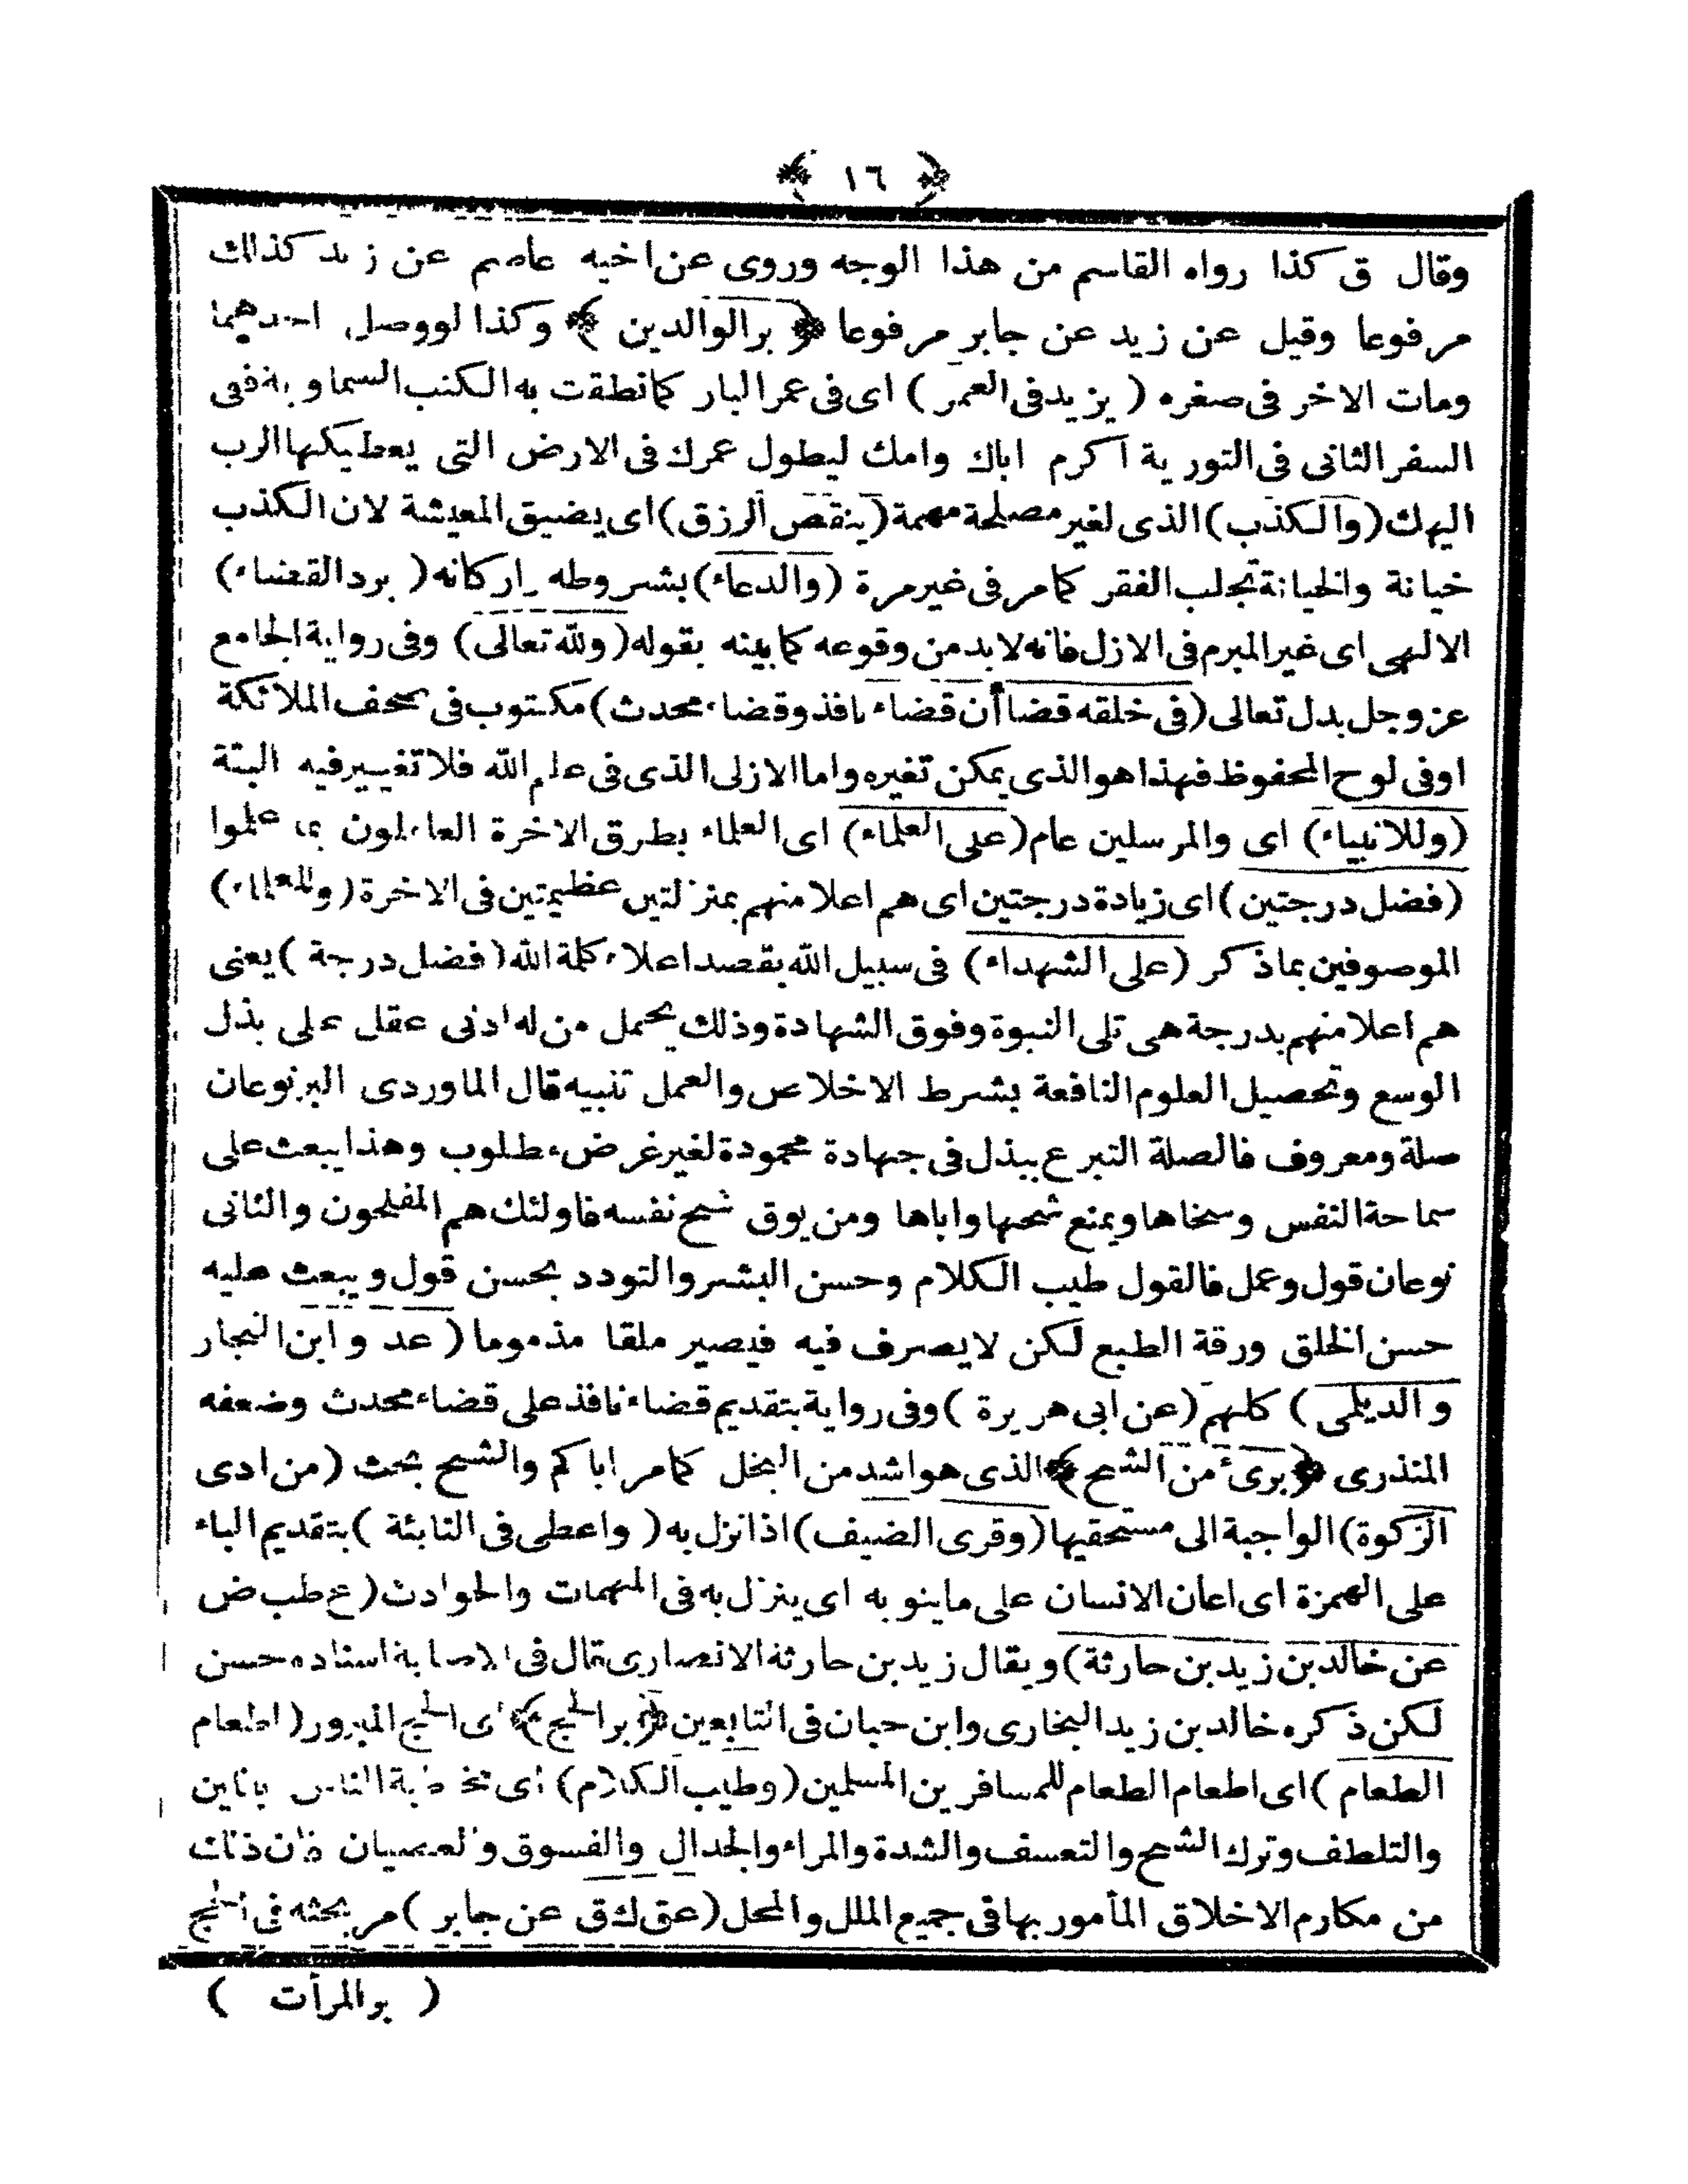 ﴿ ١٦ ﴾
وقال ق كذا رواه القاسم من هذا الوجه وروى عن اخيه عاصم عن زيد كذلك
مرفوعا وقيل عن زيد عن جابر مرفوعا ﴿ بر الوالدين ﴾ وكذا لو وصل احدهما
ومات الاخر فى صغره ( يزيد فى العمر ) اى فى عمر البار كما نطقت به الكتب السماوية ففى
السفر الثانى فى التورية اكرم اباك وامك ليطول عمرك فى الارض التى يعطيكها الرب
الهك ( والكذب ) الذى لغير مصلحة مهمة ( ينقص الرزق ) اى يضيق المعيشة لان الكذب
خيانة والخيانة تجلب الفقر كما مر فى غير مرة ( والدعاء ) بشروطه واركانه ( يرد القضاء )
الالهى اى غير المبرم فى الازل فانه لابد من وقوعه كما بينه بقوله ( ولله تعالى ) وفى رواية الجامع
عز وجل بدل تعالى ( فى خلقه قضاأن قضاء نافذ وقضاء محدث ) مكتوب فى صحف الملائكة
اوفى لوح المحفوظ فهذا هو الذى يمكن تغيره واما الازلى الذى فى علم الله فلا تغيير فيه البتة
( وللانبياء ) اى والمرسلين عام ( على العلماء ) اى العلماء بطرق الاخرة العاملون بما علموا
( فضل درجتين ) اى زيادة درجتين اى هم اعلا منهم بمنزلتين عظيمتين فى الاخرة ( وللعلماء )
الموصوفين بما ذكر ( على الشهداء ) فى سبيل الله بقصد اعلاء كلمة الله ( فضل درجة ) يعنى
هم اعلا منهم بدرجة هى تلى النبوة وفوق الشهادة وذلك يحمل من له ادنى عقل على بذل
الوسع وتحصيل العلوم النافعة بشرط الاخلاص والعمل تنبيه قال الماوردى البر نوعان
صلة ومعروف فالصلة التبرع ببذل فى جهادة محمودة لغير غرض مطلوب وهذا يبعث على
سماحة النفس وسخاها ويمنع شحها واباها ومن يوق شح نفسه فاولئك هم المفلحون والثانى
نوعان قول وعمل فالقول طيب الكلام وحسن البشر والتودد بحسن قول ويبعث عليه
حسن الخلق ورقة الطبع لكن لا يصرف فيه فيصير ملقا مذموما ( عد وابن النجار
والديلمى ) كلهم ( عن ابى هريرة ) وفى رواية بتقديم قضاء نافذ على قضاء محدث وضعفه
المنذرى ﴿ برىء من الشح ﴾ الذى هو اشد من البخل كما مر اياكم والشح بحث ( من ادى
الزكوة ) الواجبة الى مستحقيها ( وقرى الضيف ) اذا نزل به ( واعطى فى النابئة ) بتقديم الباء
على الهمزة اى اعان الانسان على ما ينوبه اى ينزل به فى المهمات والحوادث ( ع طب ض
عن خالد بن زيد بن حارثة ) ويقال زيد بن حارثة الانصارى قال فى الاصابة اسناده حسن
لكن ذكره خالد بن زيد البخارى وابن حبان فى التابعين ﴿ بر الحج ﴾ اى الحج المبرور ( اطعام
الطعام ) اى اطعام الطعام للمسافرين المسلمين ( وطيب الكلام ) اى مخاطبة الناس باللين
والتلطف وترك الشح والتعسف والشدة والمراء والجدال والفسوق والعصيان فان ذلك
من مكارم الاخلاق المأمور بها فى جميع الملل والمحل ( عق ك ق عن جابر ) مر بحثه فى الحج
( بر المرأت )